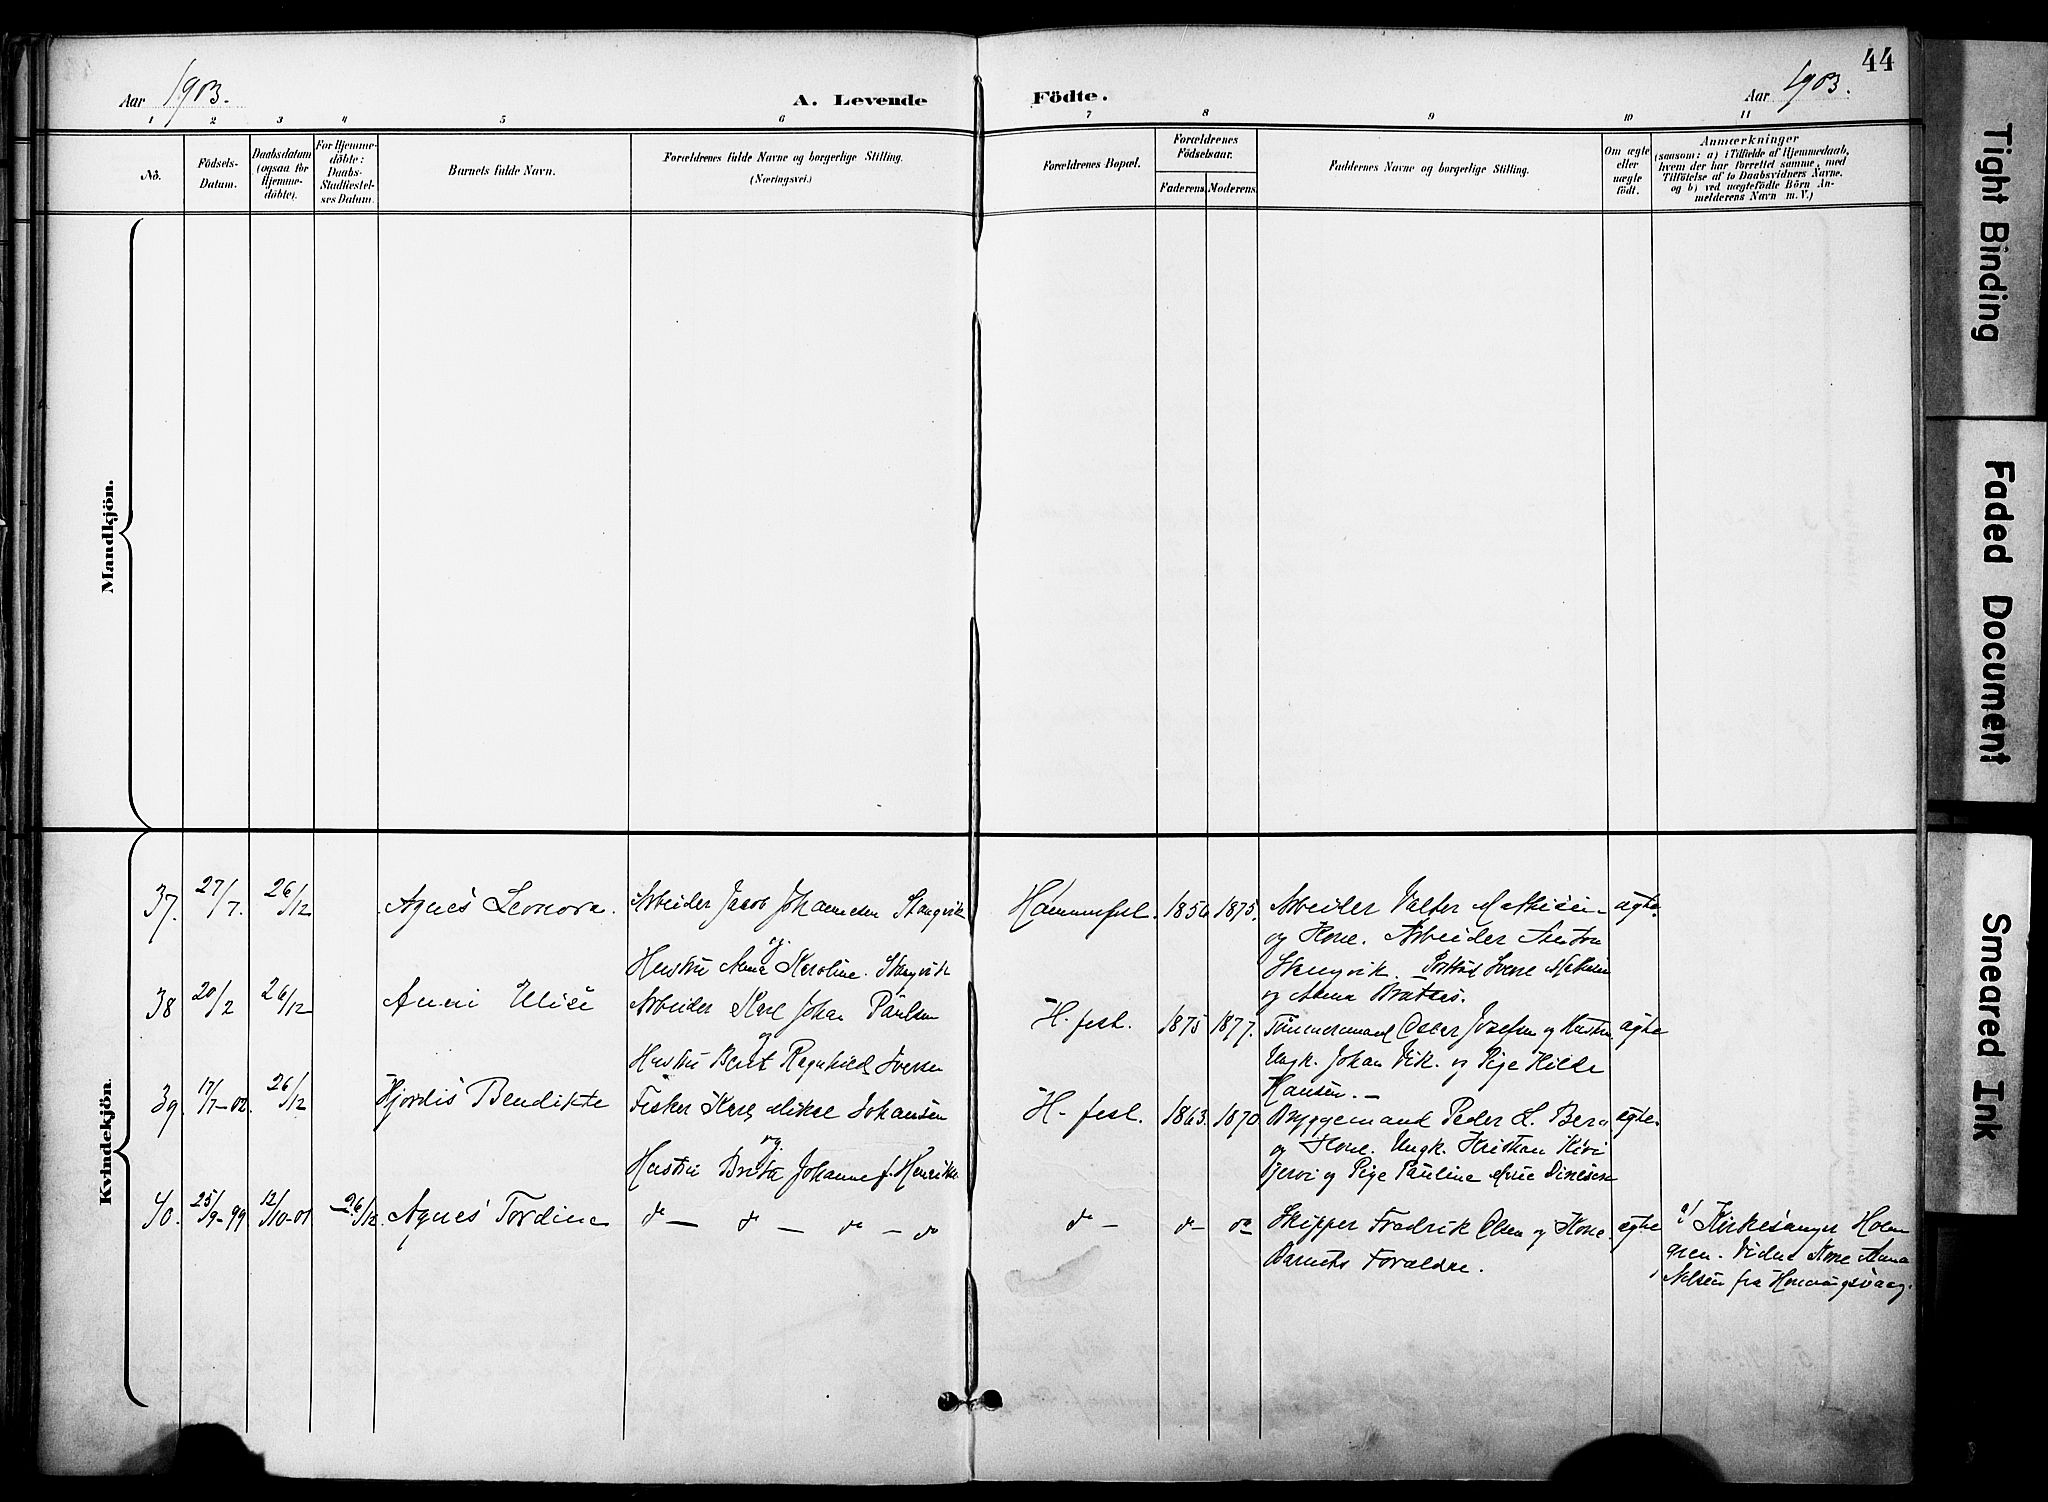 44
Aar 1903.
A. Levende Födte.
Aar 1903.
1 2 3 4 5 6 7 8 9 10 11
No.
Födsels-
Datum.
Daabsdatum
(ogsaa for
Hjemme-
döbte).
For Hjemme-
döbte:
Daabs-
Stadfæstel-
ses Datum.
Barnets fulde Navn.
Forældrenes fulde Navne og borgerlige Stilling.
(Næringsvei.)
Forældrenes Bopæl.
Forældrenes
Födselsaar.
Faderens. Moderens.
Faddernes Navne og borgerlige Stilling.
Om ægte
eller
uægte
födt.
Anmærkninger
(saasom: a) i Tilfælde af Hjemmedaab,
hvem der har forrettet samme, med
Tilföielse af to Daabsvidners Navne.
og b) ved uægtefödte Börn An-
melderens Navn m. V.)
Mandkjön.
Kvindekjön.
37. 27/7. 26/12 Agnes Leonora. Arbeider Jacob Johannesen Stangvik
og
Hustru Anna Karoline Stangvik
Hammerfest. 1850 1875. Arbeider Valter Mathisen ægte.
og Kone. Arbeider Anton
Stangvik.
og Anna
38 20/2 26/12 Anni Elise Arbeider Karl Johan Paulsen
og
Hustru Berit Ragnhild Iversen
H. fest. 1875 1877. Tømmermand Oskar Josefsen og Hustru ægte
Ungk. Johan Vik. og Pige Hilda
Hansen. —
39. 17/7-02. 26/12 Hjordis Bendikte Fisker Karl Mikal Johansen
og
Hustru Brita Johanne f. Henriks.
H. fest. 1863. 1870 Byggemand Peder L. Berg ægte.
og Kone. Ungk. Kristian Kivi
jervi og Pige Pauline Marie Dinesen
40. 25/9-99 12/10-01 26/12. Agnes Tordine do — do — do — do
do — do do Skipper Fredrik Olsen og Kone ægte
Barnets Forældre.
a) Kirkesanger Holm
gren. Vidner Kone Anna
Nilsen fra Honningsvaag.
Tight Binding
Faded Document
Smeared Ink